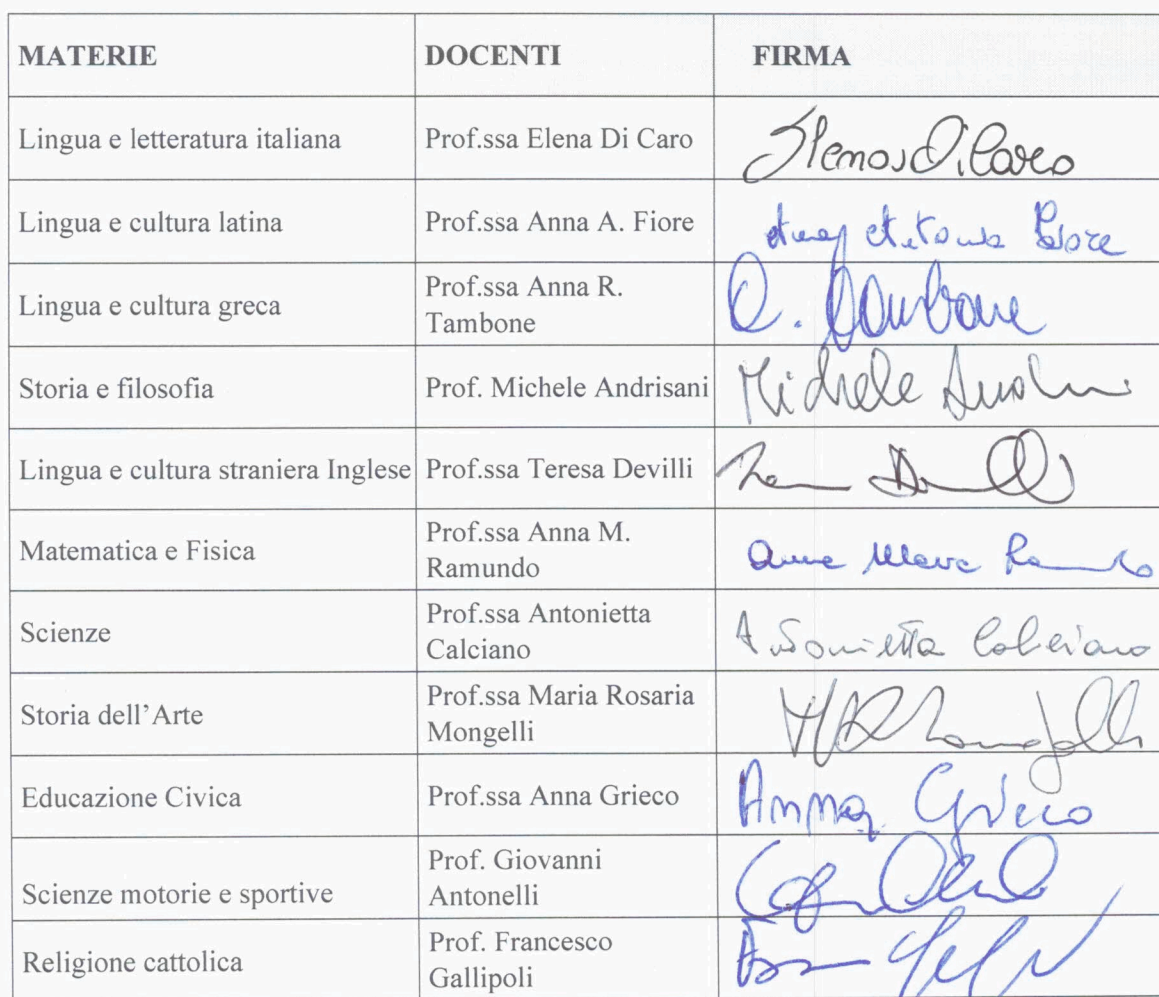 MATERIE DOCENTI FIRMA
Lingua e letteratura italiana Prof.ssa Elena Di Caro Elena Di Caro
Lingua e cultura latina Prof.ssa Anna A. Fiore
Lingua e cultura greca Prof.ssa Anna R.
Tambone Tambone
Storia e filosofia Prof. Michele Andrisani Michele
Lingua e cultura straniera Inglese Prof.ssa Teresa Devilli
Matematica e Fisica Prof.ssa Anna M.
Ramundo
Scienze Prof.ssa Antonietta
Calciano Antonietta Calciano
Storia dell’Arte Prof.ssa Maria Rosaria
Mongelli MR Mongelli
Educazione Civica Prof.ssa Anna Grieco Anna Grieco
Scienze motorie e sportive Prof. Giovanni
Antonelli
Religione cattolica Prof. Francesco
Gallipoli